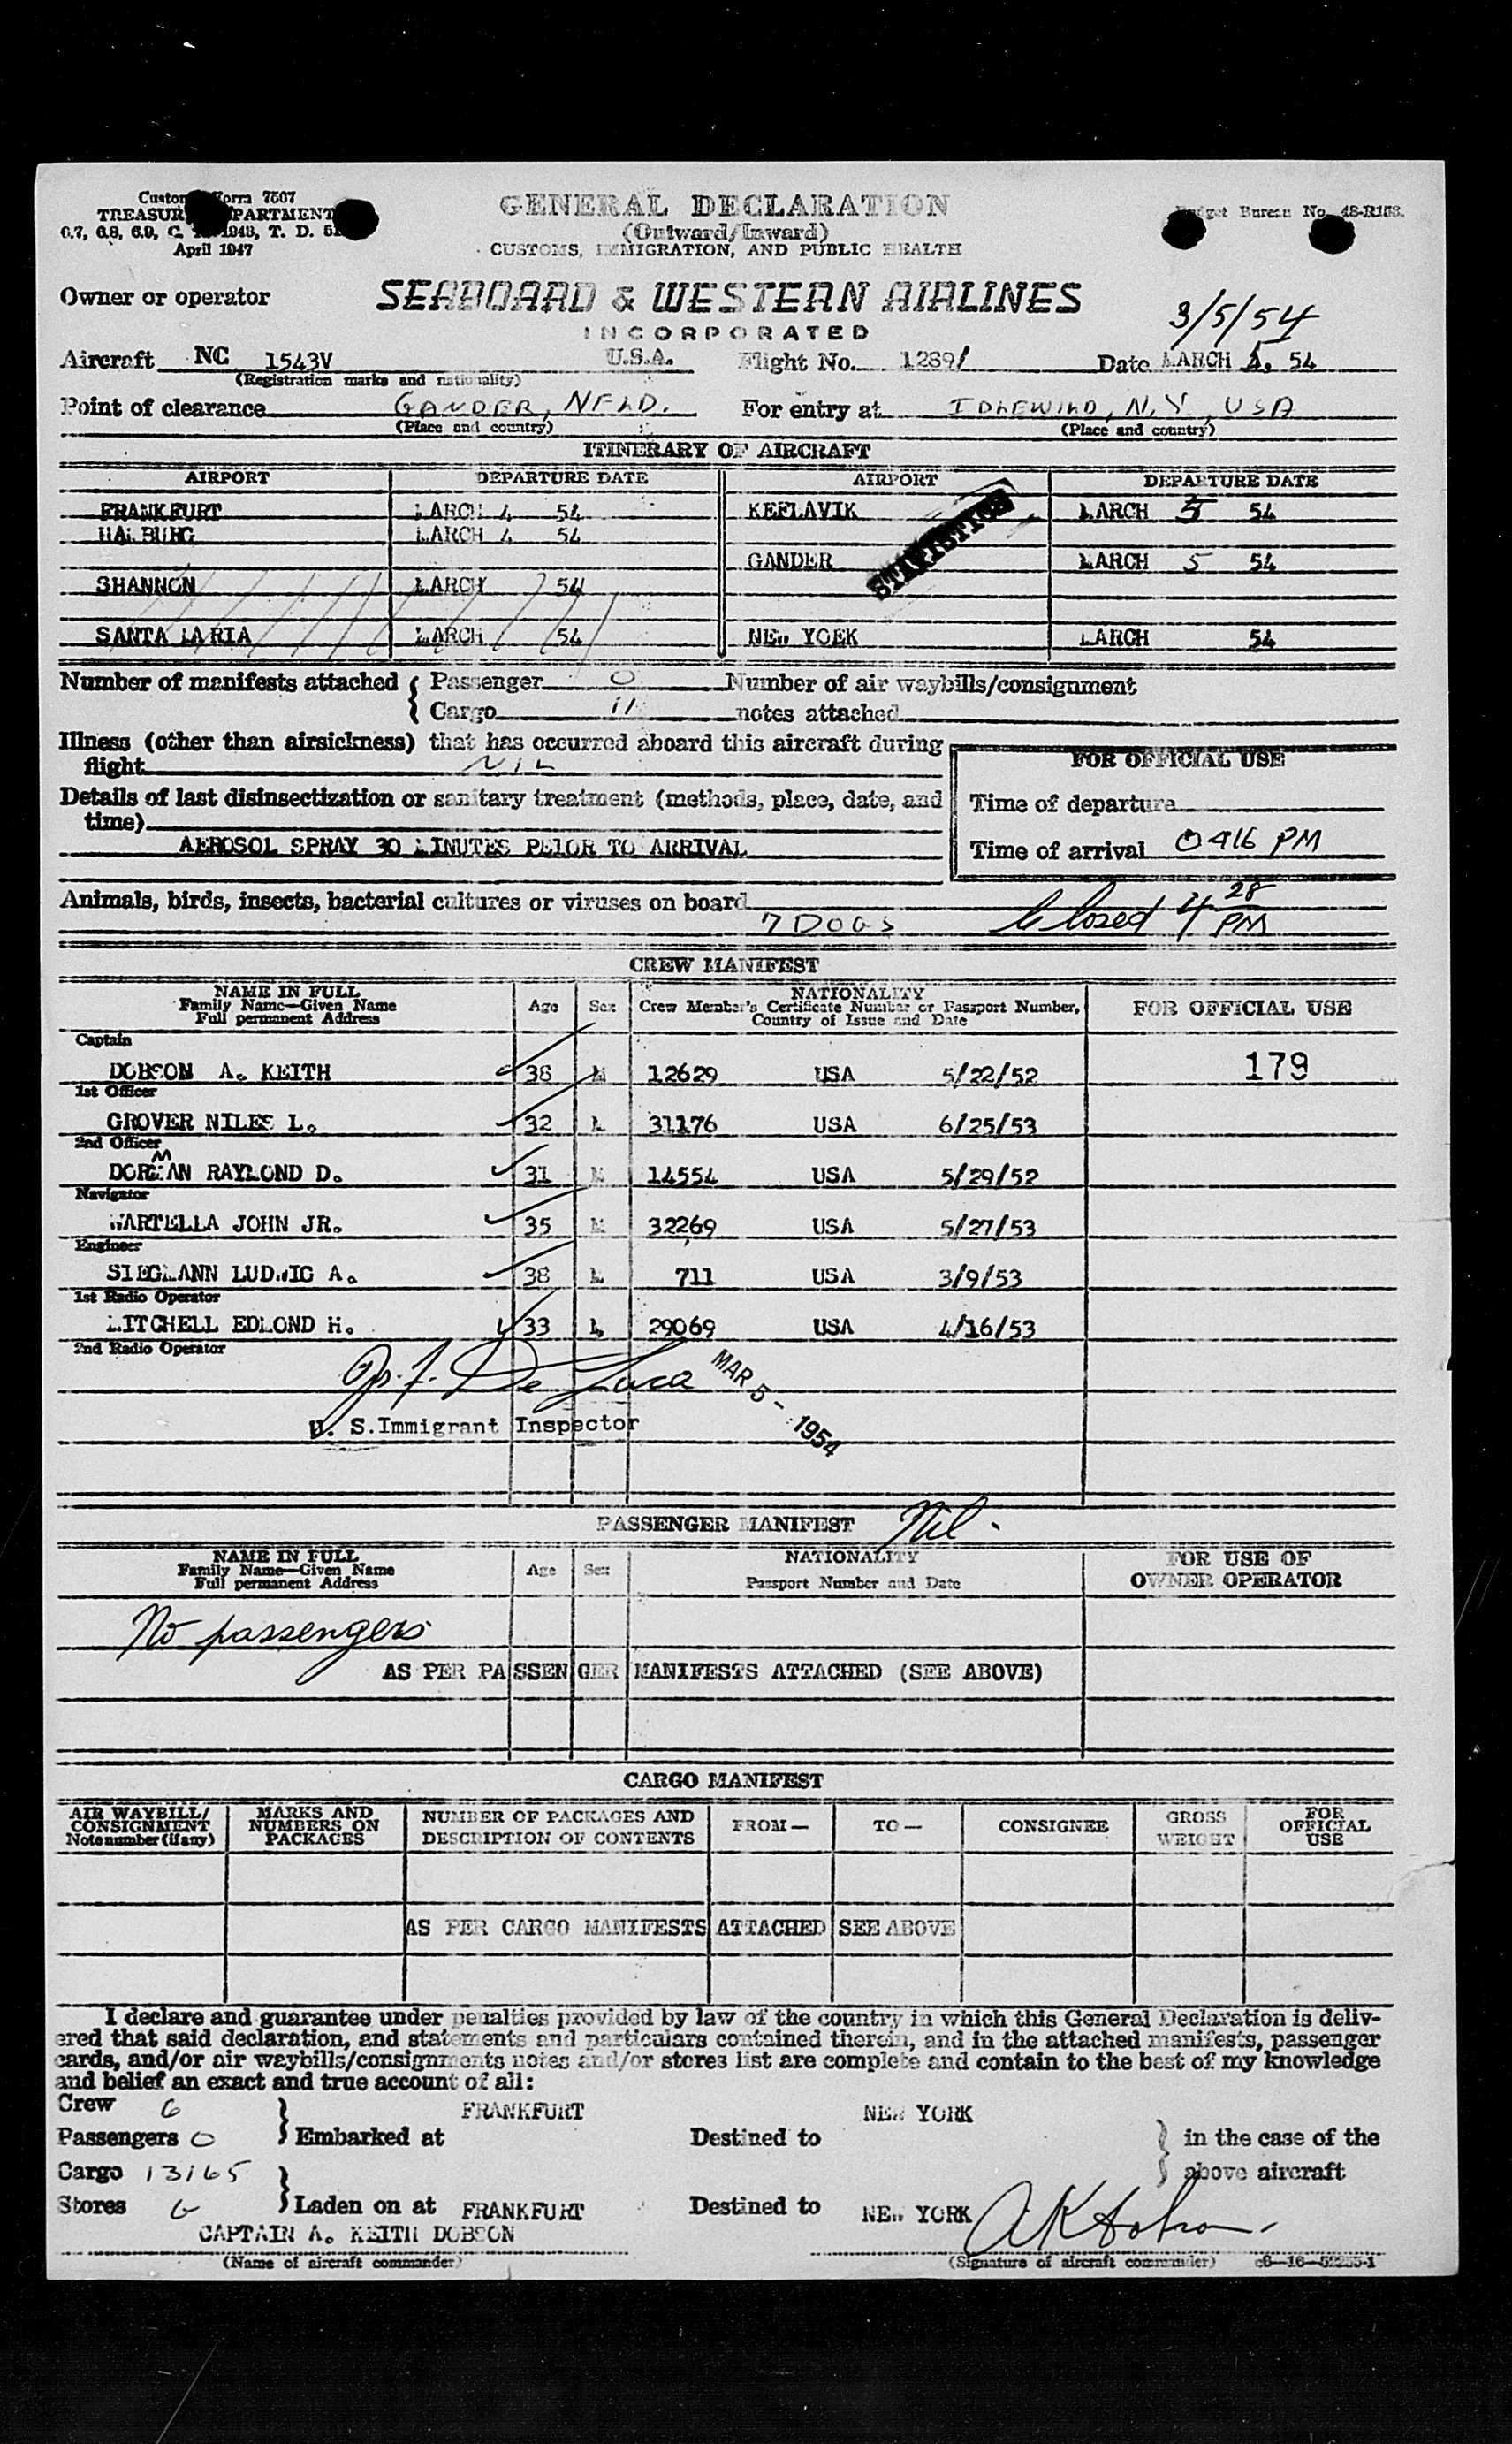 Customs Form 7507
TREASURY DEPARTMENT
6.7, 6.8, 6.9, C. 1943, T. D.
April 1947
GENERAL DECLARATION
(Outward/Inward)
CUSTOMS, IMMIGRATION, AND PUBLIC HEALTH
Budget Bureau No. 48-R153.
Owner or operator
SEABOARD & WESTERN AIRLINES
INCORPORATED
3/5/54
Aircraft NC 1543V U.S.A. Flight No. 1289/ Date MARCH 5. 54
(Registration marks and nationality)
Point of clearance GANDER, NFLD. For entry at IDLEWILD, N.Y., USA
(Place and country) (Place and country)
ITINERARY OF AIRCRAFT
AIRPORT DEPARTURE DATE AIRPORT DEPARTURE DATE
FRANKFURT MARCH 4 54 KEFLAVIK MARCH 5 54
HAMBURG MARCH 4 54
GANDER MARCH 5 54
STATISTICS
SHANNON MARCH 54
SANTA MARIA MARCH 54 NEW YORK MARCH 54
Number of manifests attached { Passenger 0 Number of air waybills/consignment
Cargo 11 notes attached
Illness (other than airsickness) that has occurred aboard this aircraft during
flight NIL
FOR OFFICIAL USE
Details of last disinsectization or sanitary treatment (methods, place, date, and
time)
Time of departure
AEROSOL SPRAY 30 MINUTES PRIOR TO ARRIVAL
Time of arrival 0416 PM
Animals, birds, insects, bacterial cultures or viruses on board
7 DOGS
Closed 4 28 PM
CREW MANIFEST
NAME IN FULL
Family Name—Given Name
Full permanent Address
Age Sex
NATIONALITY
Crew Member's Certificate Number or Passport Number,
Country of Issue and Date
FOR OFFICIAL USE
Captain
DOBSON A. KEITH 38 M 12629 USA 5/22/52 179
1st Officer
GROVER NILES L. 32 M 31176 USA 6/25/53
2nd Officer
DORMAN RAYMOND D. 31 M 14554 USA 5/29/52
Navigator
WARTELLA JOHN JR. 35 M 32269 USA 5/27/53
Engineer
SIEGMANN LUDWIG A. 38 M 711 USA 3/9/53
1st Radio Operator
MITCHELL EDMOND H. 33 M 29069 USA 4/16/53
2nd Radio Operator
De Luca
MAR 5 - 1954
U. S. Immigrant Inspector
PASSENGER MANIFEST Nil.
NAME IN FULL
Family Name—Given Name
Full permanent Address
Age Sex
NATIONALITY
Passport Number and Date
FOR USE OF
OWNER OPERATOR
No passengers
AS PER PASSENGER MANIFESTS ATTACHED (SEE ABOVE)
CARGO MANIFEST
AIR WAYBILL/
CONSIGNMENT
Note number (if any)
MARKS AND
NUMBERS ON
PACKAGES
NUMBER OF PACKAGES AND
DESCRIPTION OF CONTENTS
FROM—
TO—
CONSIGNEE
GROSS
WEIGHT
FOR
OFFICIAL
USE
AS PER CARGO MANIFESTS ATTACHED SEE ABOVE
I declare and guarantee under penalties provided by law of the country in which this General Declaration is deliv-
ered that said declaration, and statements and particulars contained therein, and in the attached manifests, passenger
cards, and/or air waybills/consignments notes and/or stores list are complete and contain to the best of my knowledge
and belief an exact and true account of all:
Crew 6 FRANKFURT NEW YORK
Passengers 0 } Embarked at Destined to } in the case of the
Cargo 13165 above aircraft
Stores } Laden on at FRANKFURT Destined to NEW YORK
CAPTAIN A. KEITH DOBSON
(Name of aircraft commander) (Signature of aircraft commander)